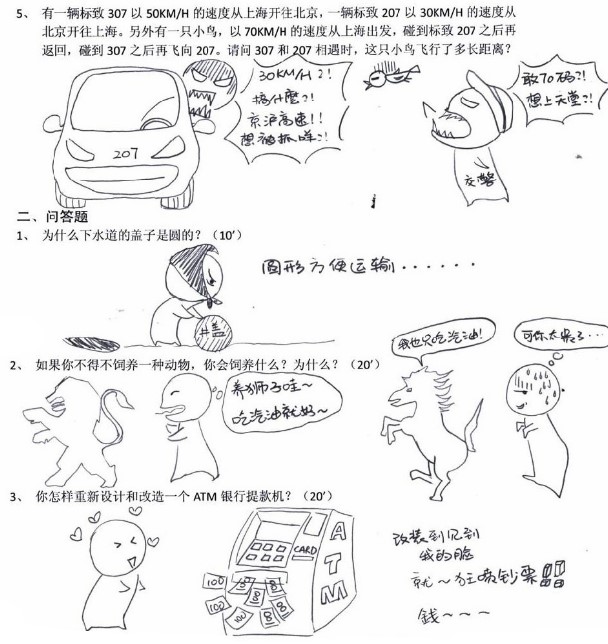 5、有一辆标致 307 以 50KM/H 的速度从上海开往北京，一辆标致 207 以 30KM/H 的速度从
北京开往上海。另外有一只小鸟，以 70KM/H 的速度从上海出发，碰到标致 207 之后再
返回，碰到 307 之后再飞向 207。请问 307 和 207 相遇时，这只小鸟飞行了多长距离？
30KM/H？！
搞什麼？！
京沪高速！！
想被抓咩？！
敢70码？！
想上天堂？！
207
交警
二、问答题
1、为什么下水道的盖子是圆的？（10’）
圆形方便运输······
井盖
2、如果你不得不饲养一种动物，你会饲养什么？为什么？（20’）
养狮子哇～
吃汽油就好～
我也只吃汽油！
可你太呆了···
3、你怎样重新设计和改造一个 ATM 银行提款机？（20’）
CARD
ATM
100
100
100
改装到见到
我的脸
就～狂喷钞票!!!
錢～～～